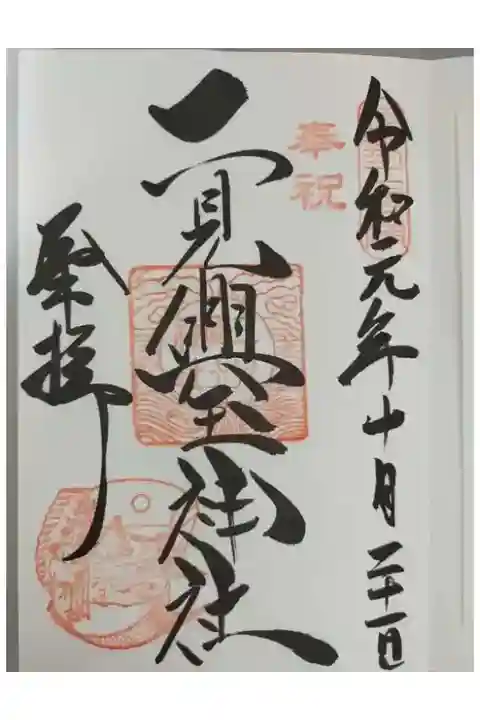 令和元年十月二十一日
奉祝
二見興玉神社